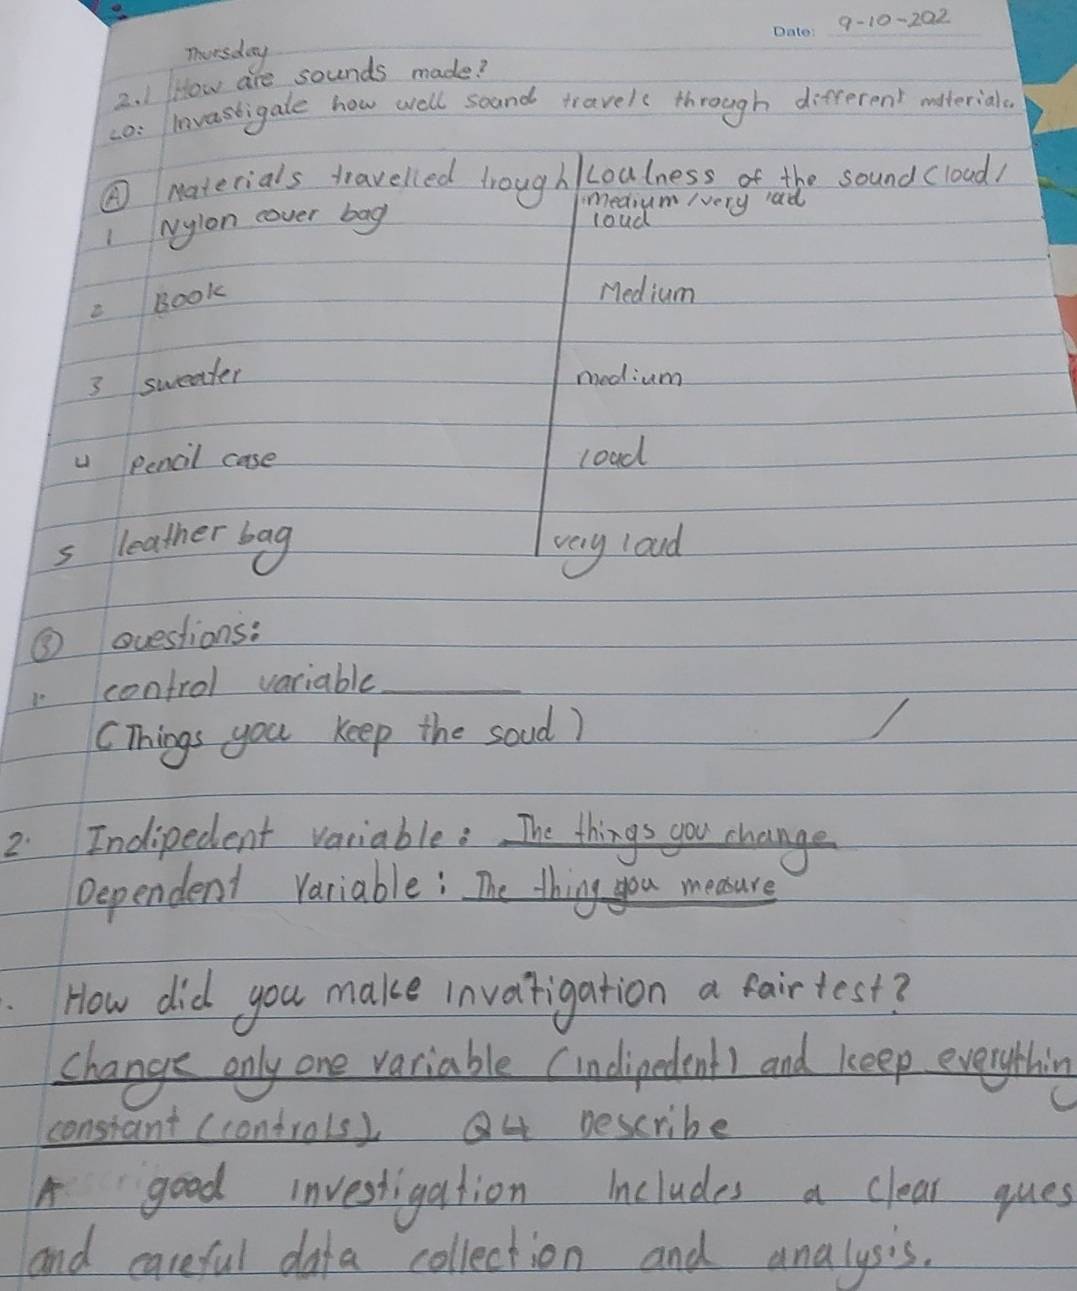 Date: 9-10-202
Thursday
2.1 How are sounds made?
LO: Invastigale how well sound travels through different materials
A Materials travelled trough Loulness of the sound (loud/
medium/very loud
1 Nylon cover bag loud
2 Book Medium
3 sweater medium
4 pencil case loud
5 leather bag very loud
B Questions:
1. control variable
(Things you keep the soud)
2. Indipedent variable: The things you change
Dependent Variable: The thing you measure
. How did you make invatigation a fair test?
change only one variable (indipedent) and keep everythin
constant (controls). Q4 Describe
A good investigation includes a clear ques
and careful data collection and analysis.